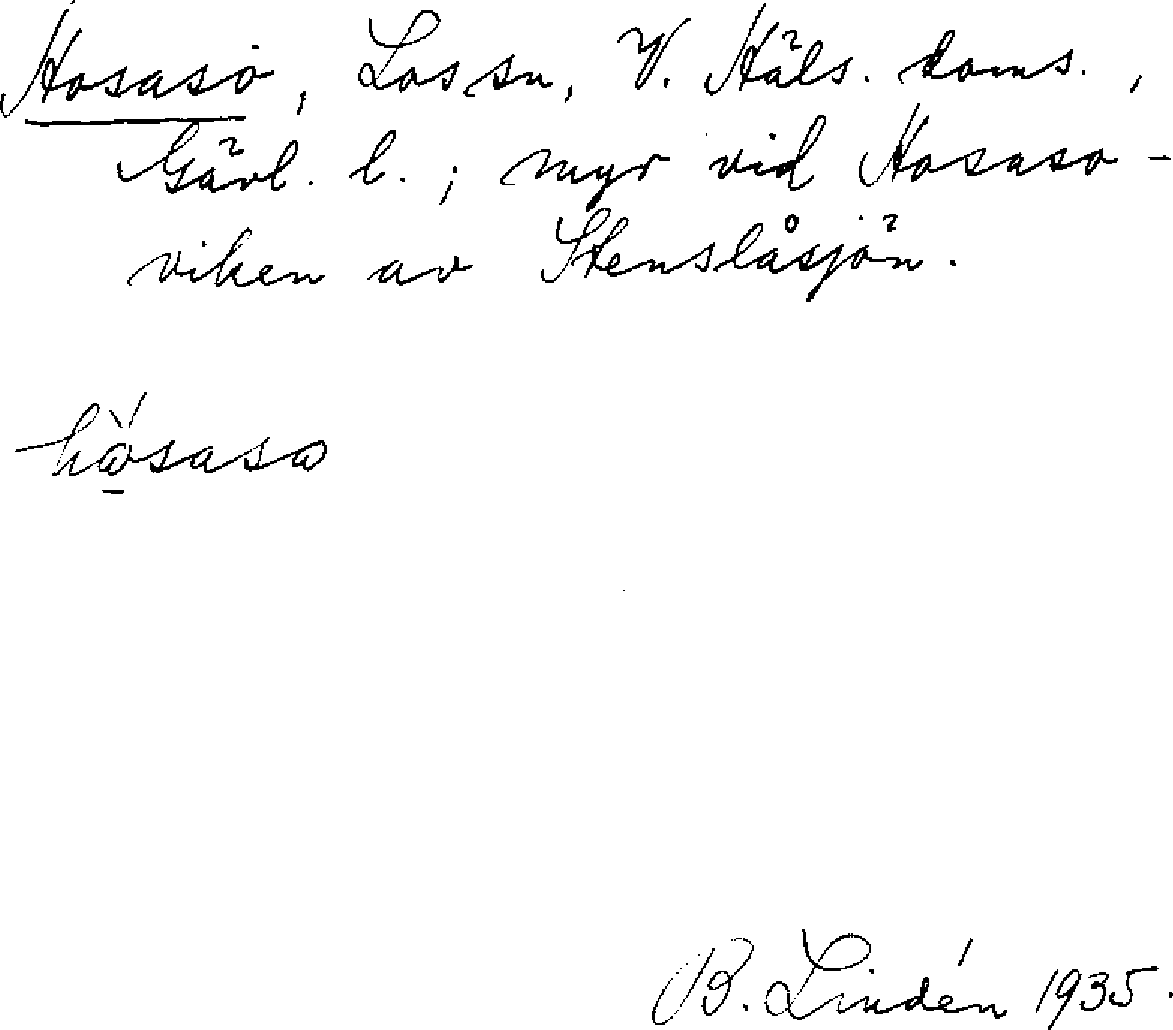 Hosaso, Los sn, V. Häls. doms.,
Gävl. l.; myr vid Hosaso-
viken av Stenslåsjön.
B. Lindén 1935.